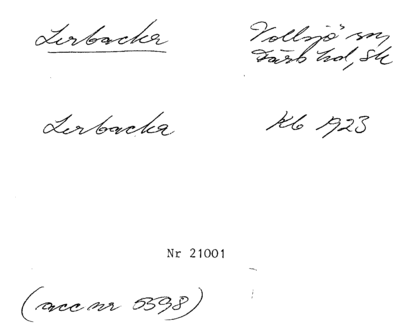 Lerbacka Vollsjö sn,
Färs hd, Sk
Lerbacka Kb 1923
Nr 21001
(acc nr 5598)